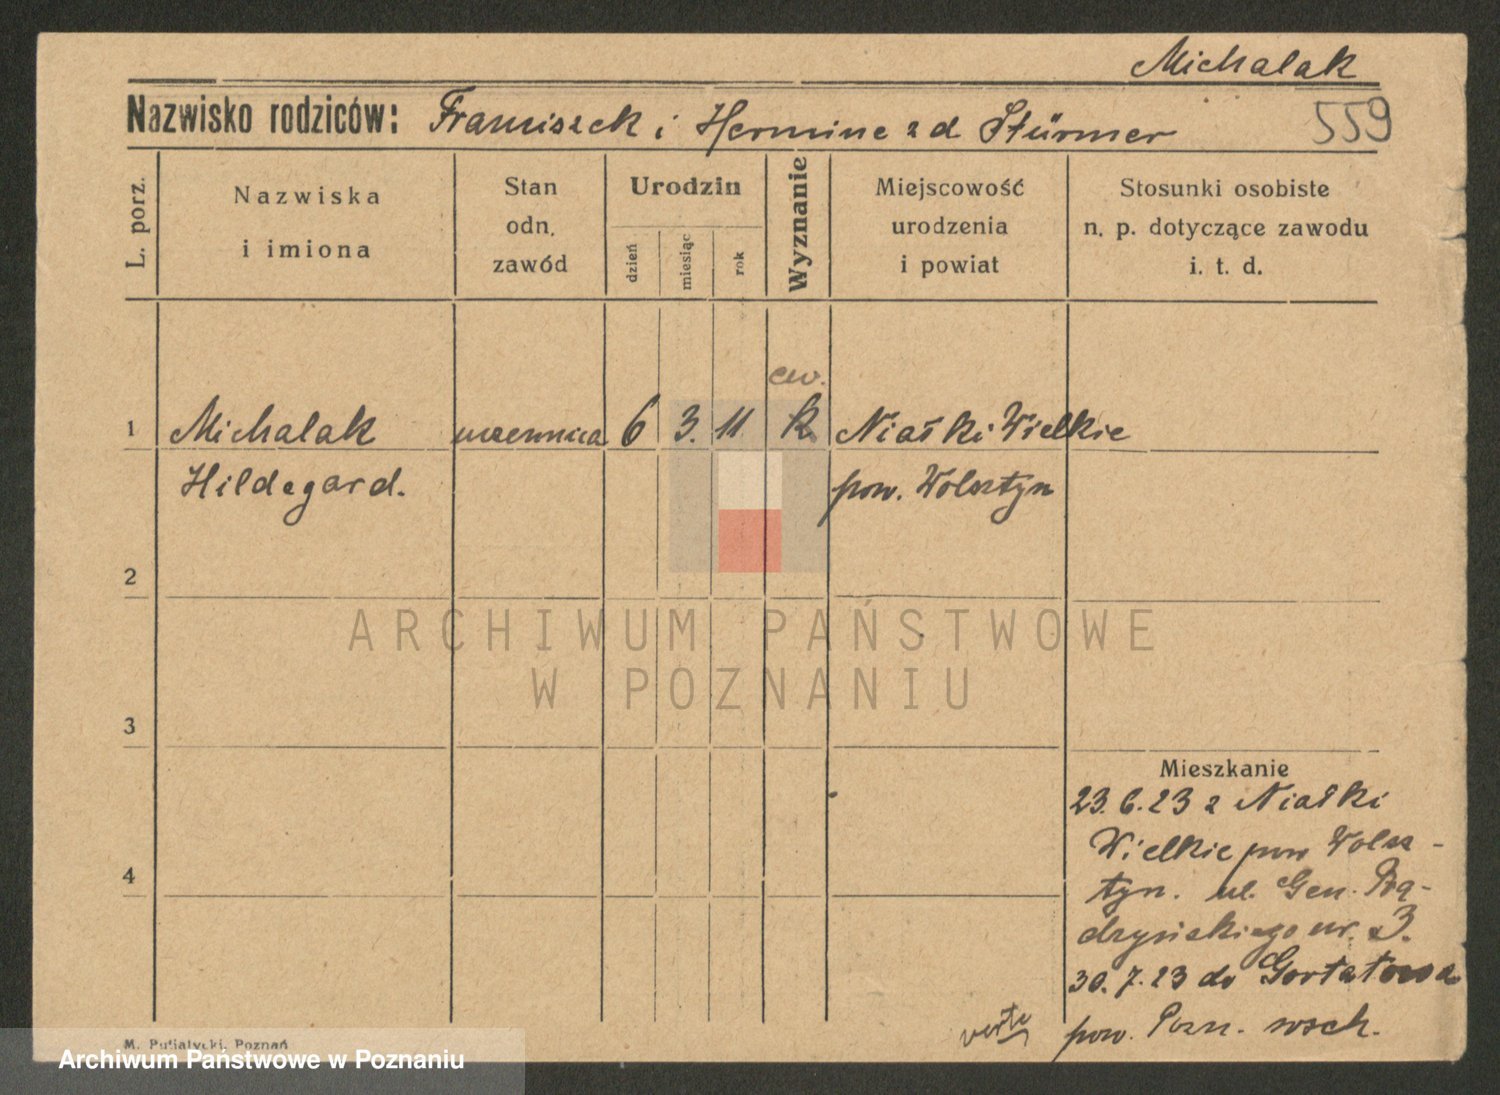 Michalak
Nazwisko rodziców: Franciszek i Hermine z d Stürmer
559
L. porz.
Nazwiska
i imiona
Stan
odn.
zawód
Urodzin
dzień
miesiąc
rok
Wyznanie
Miejscowość
urodzenia
i powiat
Stosunki osobiste
n. p. dotyczące zawodu
i. t. d.
ew.
1 Michalak uczennica 6 3. 11 k. Niałki Wielkie
Hildegard. pow. Wolsztyn
2
ARCHIWUM PAŃSTWOWE
W POZNANIU
3
Mieszkanie
23.6.23 z Niałki
Wielkie pow Wolsz-
4
tyn. ul. Gen. Prą-
dzyńskiego nr. 3.
30.7.23 do Gortatowa
verte
pow. Pozn. wsch.
M. Putiatycki, Poznań
Archiwum Państwowe w Poznaniu